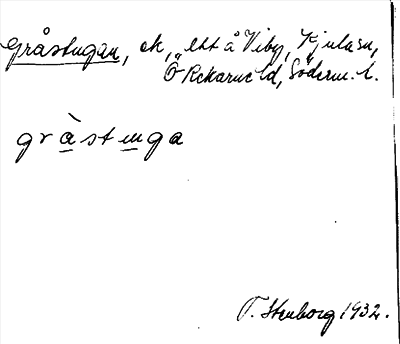 Gråstugan, ek, ett å Viby, Kjulasn,
Ö Rekarne hd, Söderm. l.
gràstuga
T. Stenborg 1932.